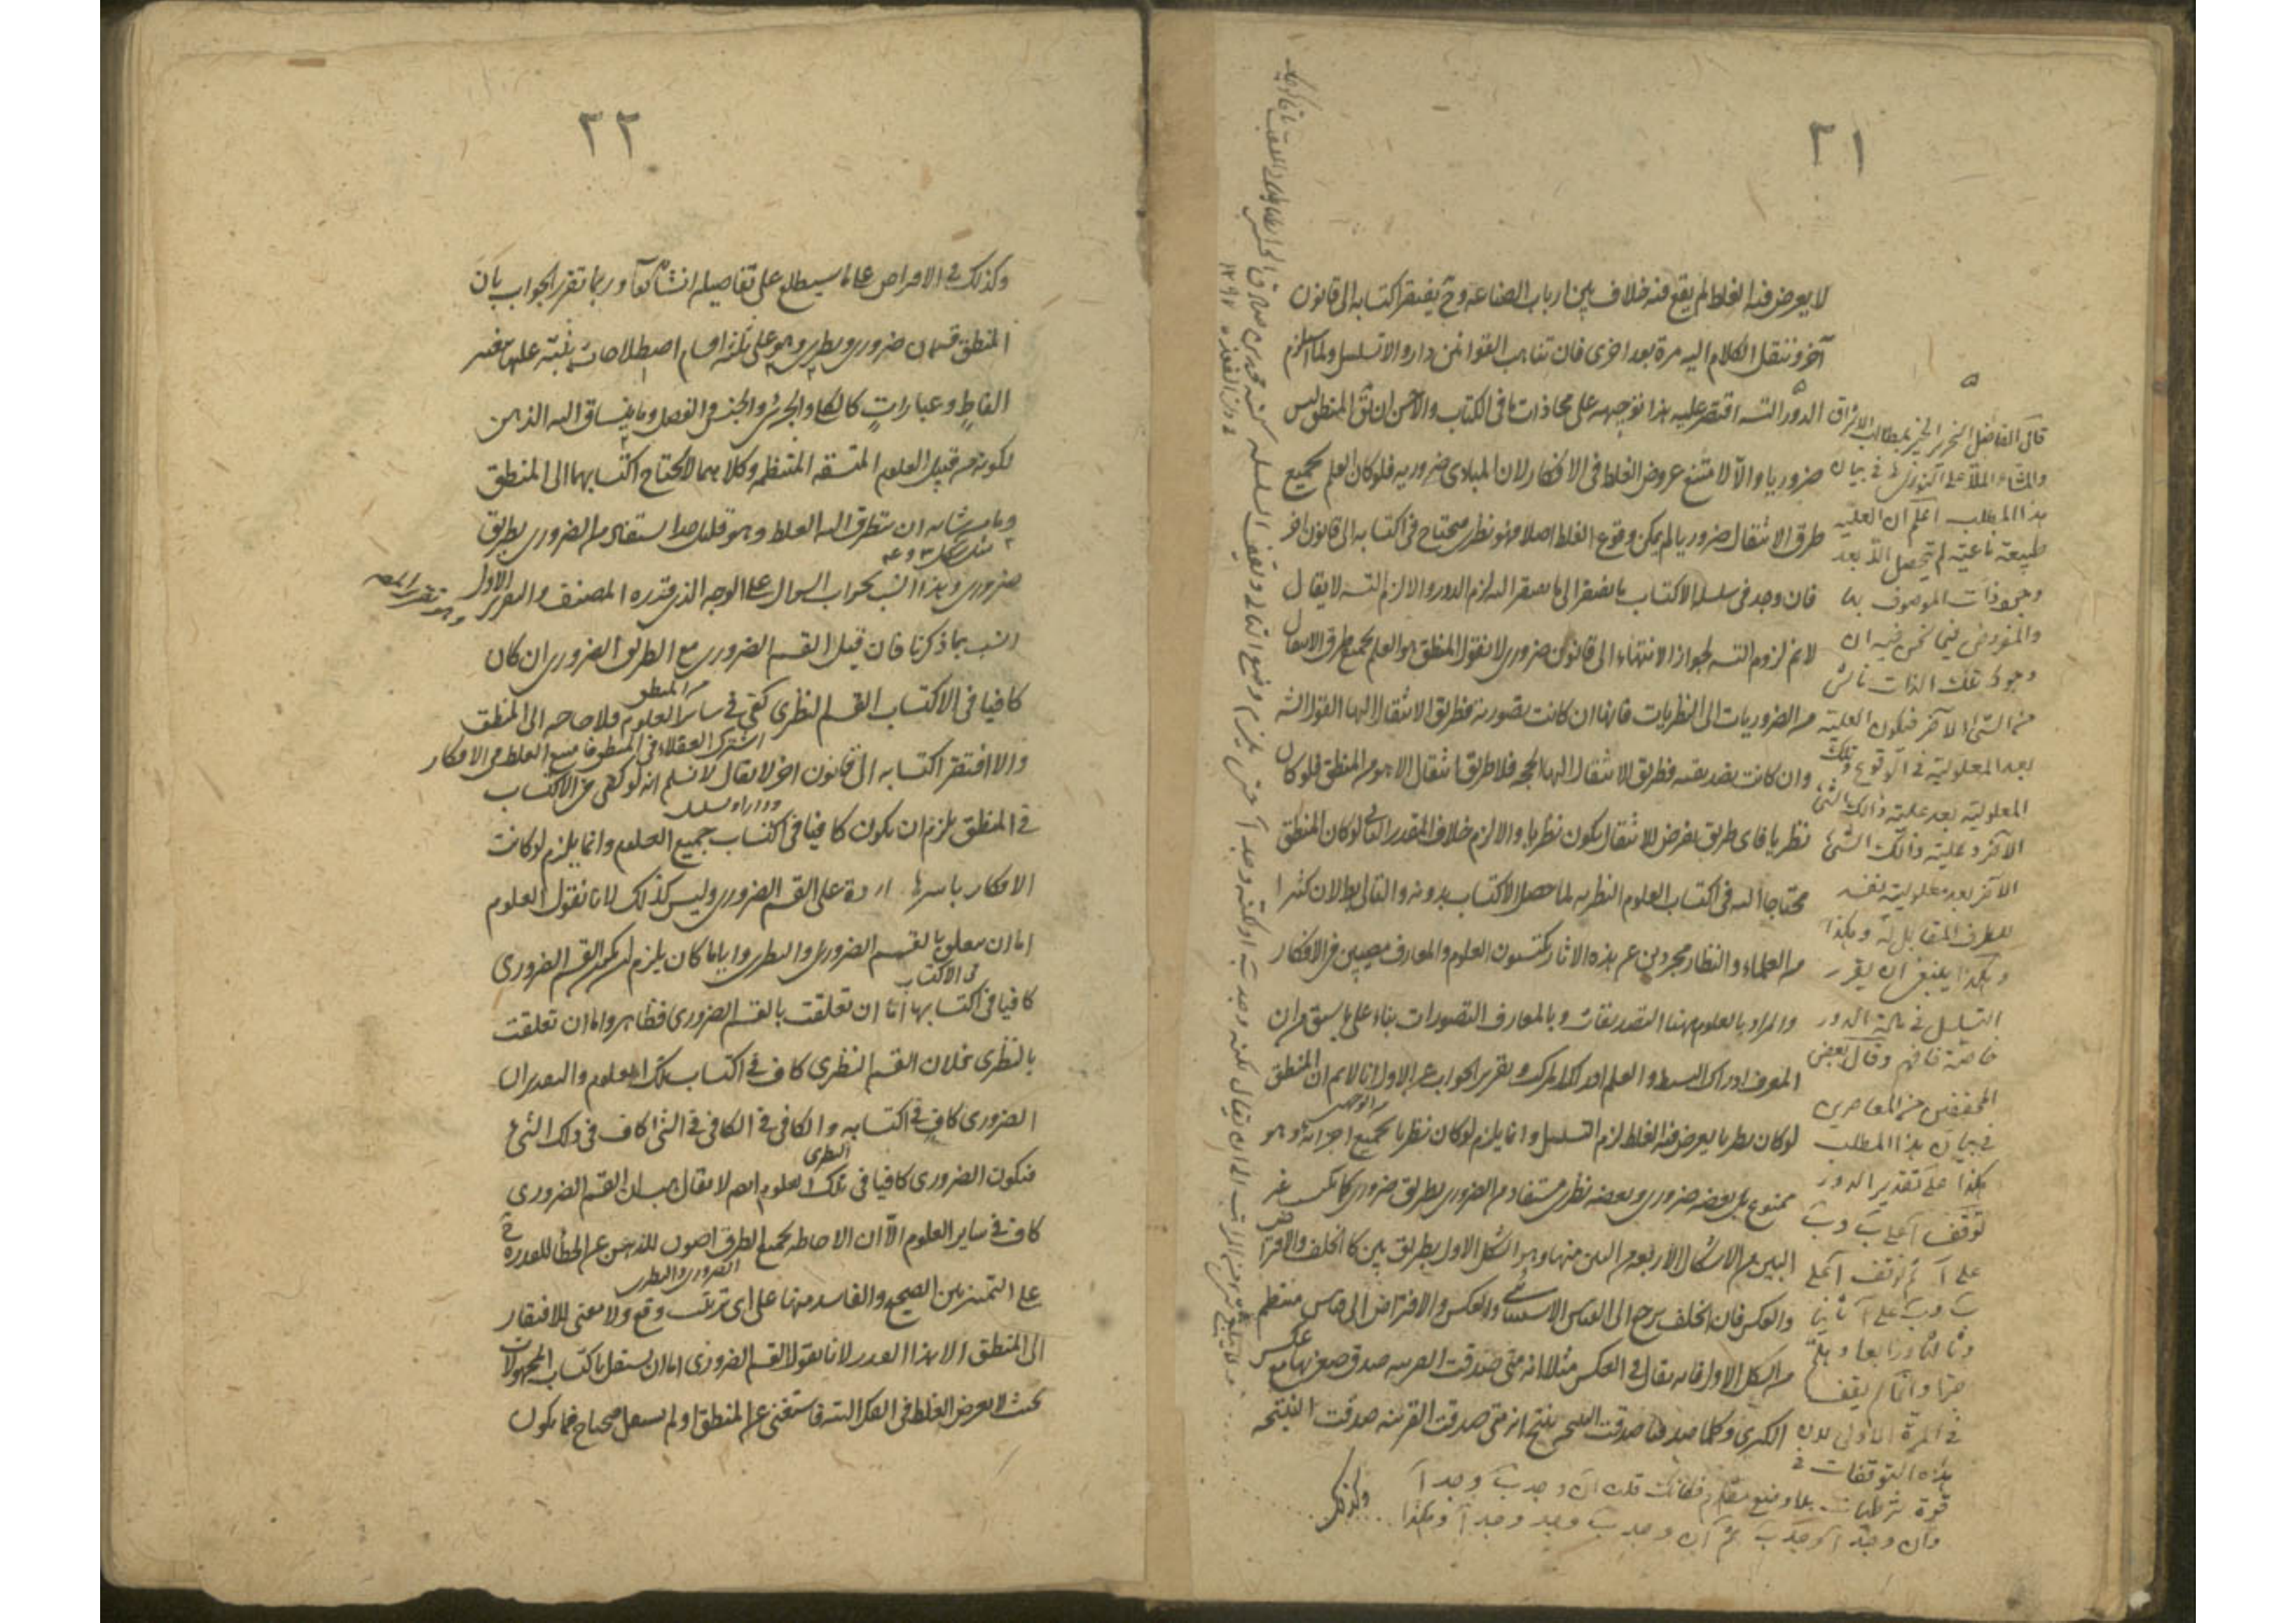 ٢١
لا يعرض فيه الغلط لم يقع فيه خلاف بين ارباب الصناعة وح يفتقر اكتسابه الى قانون
آخر وننقل الكلام اليه مرة بعد اخرى فان تناهت القوانين دار والا تسلسل ولما استلزم
الدور التسـ اقتصر عليه هذا توجيهه على محاذات ما فى الكتاب والاحسن ان المنطق ليس
ضروريا والا لامتنع عروض الغلط فى الافكار لان المبادى ضرورية فلو كان العلم بجميع
طرق الانتقال ضروريا لم يمكن وقوع الغلط اصلا فهو نظرى يحتاج فى اكتسابه الى قانون اخر
فان وجد فى سلسلة الاكتساب ما يفتقر الى ما يفتقر اليه لزم الدور والا لزم التسـ لا يقال
لانم لزوم التسـ لجواز الانتهاء الى قانون ضرورى لانا نقول المنطق هو العلم بجميع طرق الانتقال
من الضروريات الى النظريات فانها ان كانت تصورية فطريق الانتقال اليها القول الشـ
وان كانت تصديقية فطريق الانتقال اليها الحجة فلا طريق انتقال الا هو من المنطق فلو كان
نظريا فاى طريق يفرض للانتقال يكون نظريا والا لزم خلاف المقدر لو كان المنطق
محتاجا اليه فى اكتساب العلوم النظرية لما حصل الاكتساب بدونه والتالى بط لان كثيرا
من العلماء والنظار مجردين عن هذه الاثار يكتسبون العلوم والمعارف مصيبين فى الافكار
والمراد بالعلوم ههنا التصديقات وبالمعارف التصورات بناء على ما سبق من ان
المعرفة ادراك البسيط والعلم ادراك المركب وتقرير الجواب عن الاول انا لانم ان المنطق
لو كان نظريا يعرض فيه الغلط لزم التسلسل وانما يلزم لو كان نظريا بجميع اجزائه وهو
ممنوع بل بعضه ضرورى وبعضه نظرى مستفاد من الضرورى بطريق ضرورى كما يكتسب غير
البين من الاشكال الاربعة من البين منها وهو الشكل الاول بطريق بين كالخلف والافتراض
والعكس فان الخلف يرجع الى القياس الاستثنائى والعكس والافتراض الى قياس منتظم
من الشكل الاول فانه يقال فى العكس مثلا انه متى صدقت القرينة صدق صغريها مع عكس
الكبرى وكلما صدقتا صدقت النتيجة ينتج انه متى صدقت القرينة صدقت النتيجة
وكذلك
قال الفاضل النحرير
هذا المطلب اعلم ان العلية
طبيعة ناعتية لم تحصل الا بعد
وجود ذات الموصوف بها
والمفروض فيما نحن فيه ان
وجود تلك الذات ناش
من الشئ الآخر فيكون العلية
بعد المعلولية فى الوقوع وتلك
المعلولية بعد علية ذلك الشئ
الآخر وعلية ذلك الشئ
الآخر بعد معلولية نفسه
للطرف المقابل له وهكذا
وهكذا ينبغى ان يقرر
التسلسل فى مادة الدور
خاصة فافهم وقال بعض
المحققين من المعاصرين
فى بيان هذا المطلب
هكذا على تقدير الدور
توقف آ على ب وب
على آ ثم توقف آ على
ب وب على آ ثانيا
وثالثا ورابعا وهلم
جرا وانما لم يقف
فى المرة الاولى لان
هذه التوقفات فى
قوة شرطيات
٢٢
وكذلك فى الافتراض على ما سيطلع على تفاصيله انشاء الله تعالى وربما تقرر الجواب بان
المنطق قسمان ضرورى ونظرى وهو على ثلثة اقسام اصطلاحات ينبه عليها بتغيير
الفاظ وعبارات كالكلى والجزئى والجنس والفصل وما ينساق اليه الذهن
لكونه من قبيل العلوم المتسقة المنتظمة وكلاهما لا يحتاج اكتسابهما الى المنطق
وما من شانه ان يتطرق اليه الغلط وهو قليل جدا يستفاد من الضرورى بطريق
ضرورى وهذا انسب بجواب السوال على الوجه الذى قدره المصنف والتقرير الاول
انسب بما ذكرنا فان قيل القسم الضرورى مع الطريق الضرورى ان كان
كافيا فى الاكتساب القسم النظرى من المنطق كفى فى سائر العلوم فلا حاجة الى المنطق
والا افتقر اكتسابه الى قانون اخر لا يقال لا نسلم انه لو كفى فى الاكتساب
فى المنطق يلزم ان يكون كافيا فى اكتساب جميع العلوم وانما يلزم لو كانت
الافكار باسرها واردة على القسم الضرورى وليس كذلك لانا نقول العلوم
اما ان يتعلق بالقسم الضرورى والنظرى واياما كان يلزم ان يكون القسم الضرورى
كافيا فى اكتسابها اما ان تعلقت بالقسم الضرورى فظاهر واما ان تعلقت
بالنظرى فلان القسم النظرى كاف فى اكتساب تلك العلوم والتقدير ان
الضرورى كاف فى اكتسابه والكافى فى الكافى فى الشئ كاف فى ذلك الشئ
فيكون الضرورى كافيا فى تلك العلوم ايضا لا يقال هب ان القسم الضرورى
كاف فى ساير العلوم الا ان الاحاطة بجميع الطرق اصون للذهن عن الخطأ للقدرة فى
على التمييز بين الصحيح والفاسد منها على اى ترتيب وقع ولا معنى للافتقار
الى المنطق الا هذا القدر لانا نقول القسم الضرورى اما ان يستقل باكتساب المجهولات
بحيث لا يعرض الغلط فى الفكر البتة فاستغنى عن المنطق او لم يستقل فيحتاج فيما يكون